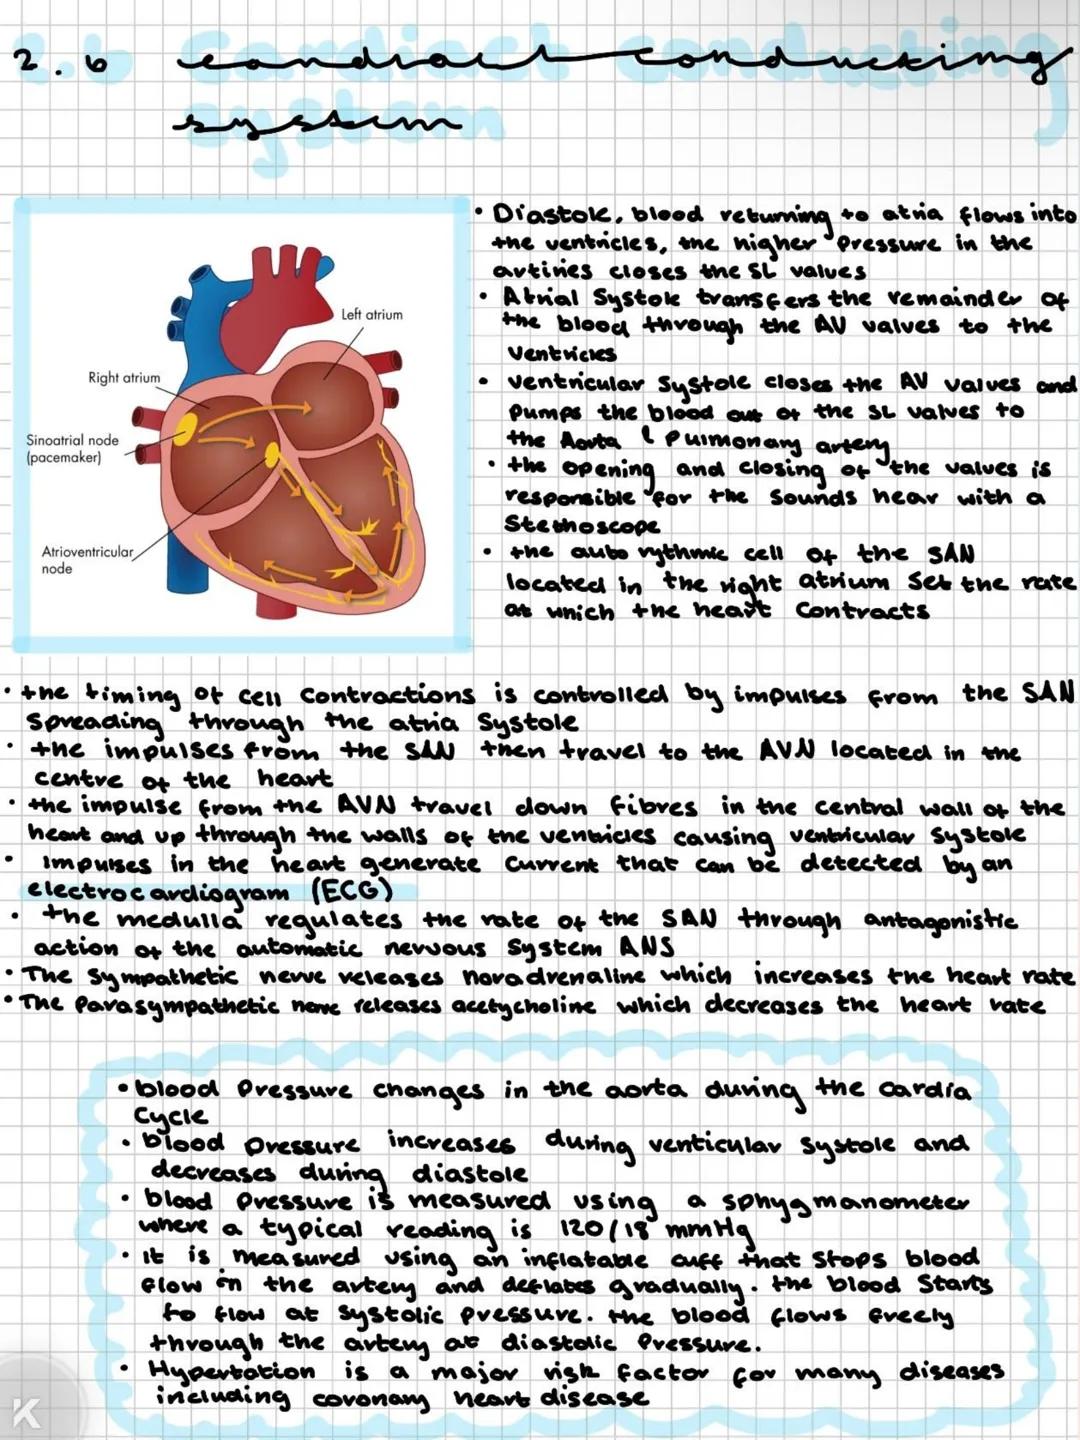 2.6 cardiact conducting
system
Left atrium
Right atrium
Sinoatrial node
(pacemaker)
Atrioventricular
node
• Diastole, blood returning to atria flows into
the ventricles, the higher pressure in the
artiries closes the SL values
• Atrial Systole transfers the remainder of
the blood through the AV valves to the
ventricles
• ventricular Systole closes the AV valves and
pumps the blood out of the SL valves to
the Aorta & Pulmonary artery
• the opening and closing of the valves is
responsible for the sounds hear with a
Stethoscope
• the auto rythmic cell of the SAN
located in the right atrium set the rate
at which the heart contracts
• the timing of cell contractions is controlled by impulses from the SAN
spreading through the atria Systole
• the impulses from the SAN then travel to the AVN located in the
centre of the heart
• the impulse from the AVN travel down fibres in the central wall of the
heart and up through the walls of the ventricles causing ventricular Systole
• Impulses in the heart generate current that can be detected by an
electrocardiogram (ECG)
• the medulla regulates the rate of the SAN through antagonistic
action of the automatic nervous System ANS
• The Sympathetic nerve releases noradrenaline which increases the heart rate
• The Parasympathetic nerve releases acetycholine which decreases the heart rate
• blood Pressure changes in the aorta during the cardia
Cycle
• blood pressure increases during venticular systole and
decreases during diastole
• blood pressure is measured using a sphygmanometer
where a typical reading is 120/18 mmHg
• it is measured using an inflatable cuff that stops blood
flow in the artery and deflates gradually. the blood Starts
to flow at systolic pressure. the blood flows freely
through the artery at diastolic Pressure.
• Hypertation is a major risk factor for many diseases
including coronary heart disease
K